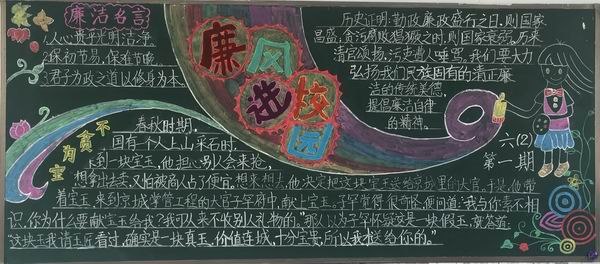 廉洁名言
人心贵乎光明洁净
保初节易，保晚节难
君子为政之道以修身为本
廉风进校园
历史证明：勤政廉政盛行之日，则国家
昌盛，贪污腐败猖獗之时，则国家衰弱，历来
清官颂扬，污吏遭人唾骂，我们要大力
弘扬我们民族固有的清正廉
洁的传统美德，
提倡廉洁自律
的精神。
六(2)
第一期
不贪为宝
春秋时期，
国有一个人上山采石时，
来到一块宝玉，他担心别人会来抢，
想拿出去卖，又怕被商人占了便宜。想来想去，他决定把这块宝玉送给京城里的大官。于是，他带
着宝玉，来到京城掌管工程的大官子罕府中，献上宝玉。子罕觉得很奇怪，便问道："我与你素不相
识，你为什么要献宝玉给我？我可从来不收别人礼物的。"那人以为子罕怀疑这是一块假玉，就答道：
这块玉我请玉匠看过，确实是一块真玉，价值连城，十分宝贵，所以我才送给你的。"